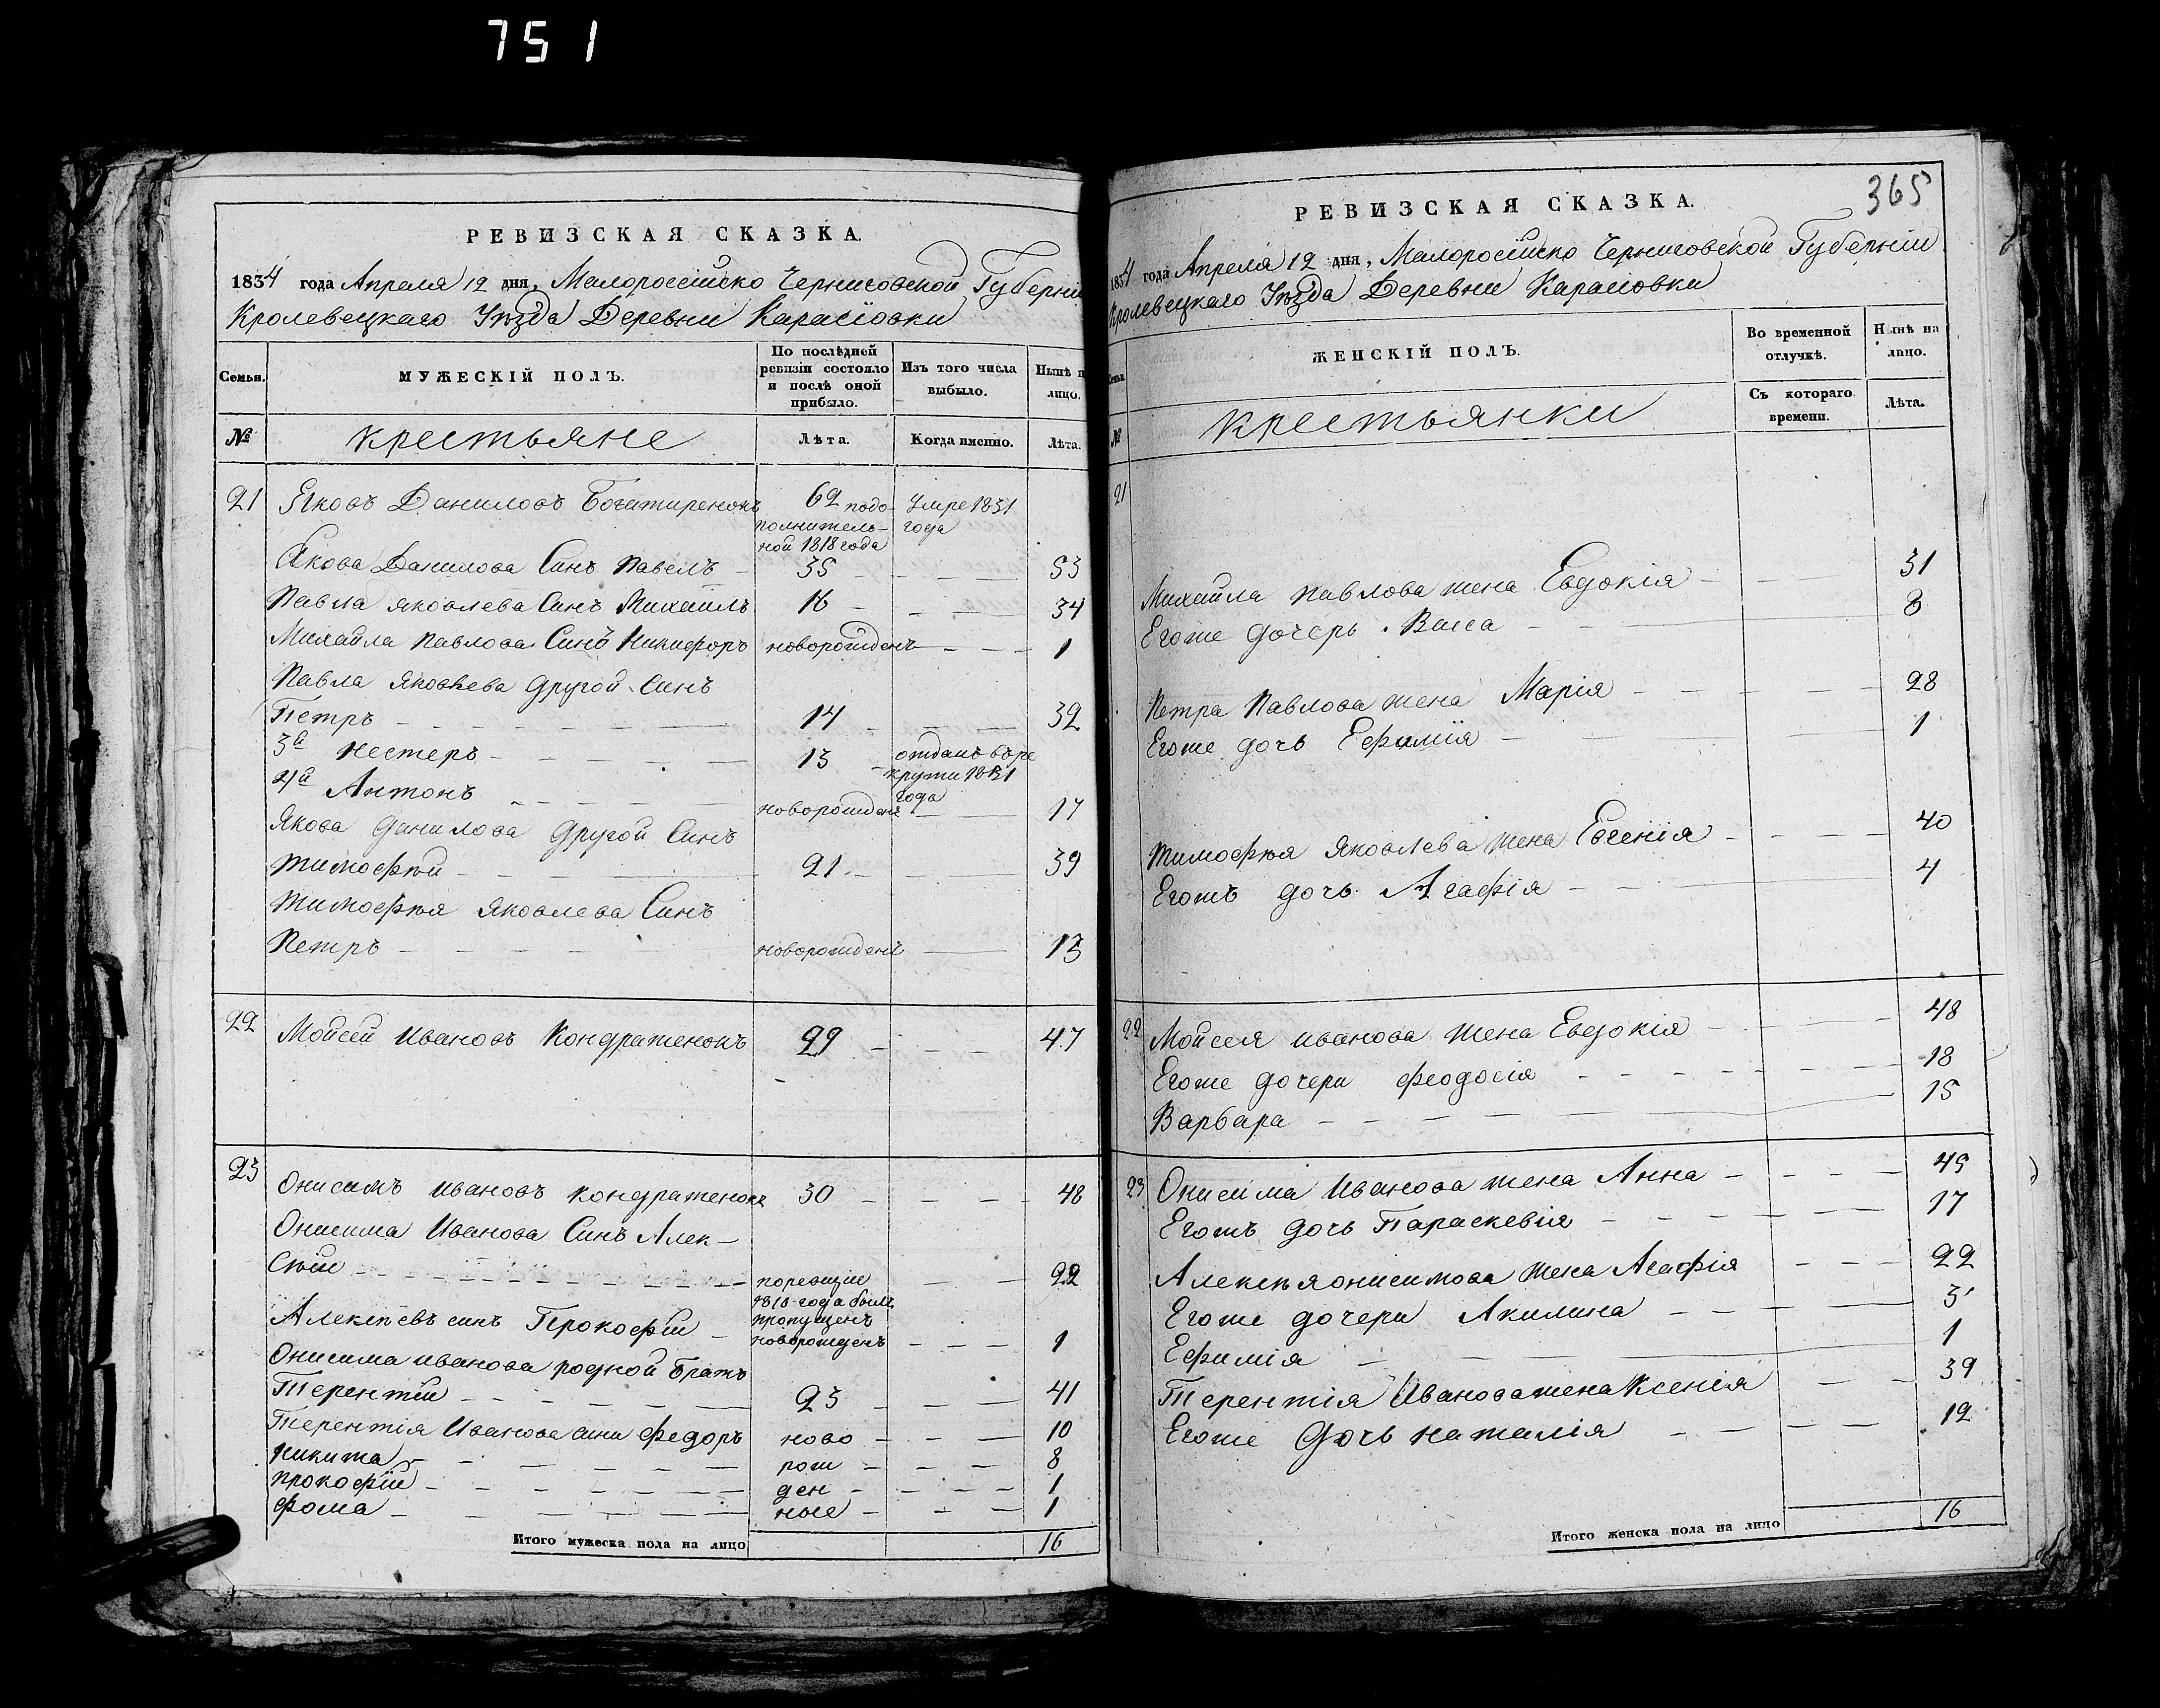 751
РЕВИЗСКАЯ СКАЗКА.
1834 года Апреля 12 дня, Малороссійско Черниговской Губерніи
Кролевецкаго Уѣзда Деревни Карасіовки
Семьи.
МУЖЕСКІЙ ПОЛЪ.
По послѣдней ревизіи состояло и послѣ оной прибыло.
Изъ того числа выбыло.
Нынѣ н лицо.
№
крестьяне
Лѣта.
Когда именно.
Лѣта.
21 Яковъ Даниловъ Богатиренокъ 62 подо- Умре 1831
полнитель- года
ной 1818 года
Якова Данилова Синъ Павелъ 35 53
Павла Яковлева Синъ Михаилъ 16 34
Михайла Павлова Синъ Никифоръ новорожденъ 1
Павла Яковлева Другой Синъ
Петръ 14 32
3й Нестеръ 13 отданъ въре
крути 1831
4й Антонъ новорожденъ года 17
Якова Данилова Другой Синъ
Тимофѣй 21 39
Тимофѣя Яковлева Синъ
Петръ новорожденъ 13
22 Мойсей Ивановъ Кондратенокъ 29 47
23 Онисимъ Ивановъ Кондратенокъ 30 48
Онисима Иванова Синъ Алек-
Сѣй поревизіи 22
1818 года былъ
пропущенъ
Алексѣевъ синъ Прокофій новорожденъ 1
Онисима Иванова родной Братъ
Терентій 23 41
Терентія Иванова сини Федоръ ново 10
Никита рож 8
Прокофій ден 1
Фома ные 1
Итого мужеска пола на лицо 16
365
РЕВИЗСКАЯ СКАЗКА.
1834 года Апреля 12 дня, Малоросійско Черниговской Губерніи
Кролевецкаго Уѣзда Деревни Карасіовки
Семьи.
ЖЕНСКІЙ ПОЛЪ.
Во временной отлучкѣ.
Нынѣ на лицо.
№
крестьянки
Съ котораго времени.
Лѣта.
21
Михайла Павлова жена Евдокія 31
Егоже дочерь Васса 8
Петра Павлова жена Марія 28
Егоже дочь Ефимія 1
Тимофѣя Яковлева жена Евгенія 40
Егожъ дочь Агафія 4
22 Мойсея Иванова жена Евдокія 48
Егоже дочери Феодосія 18
Варвара 15
23 Онисима Иванова жена Анна 45
Егожъ дочь Параскевія 17
Алексѣя Онисимова жена Агафія 22
Егоже дочери Акилина 3
Ефимія 1
Терентія Иванова жена Ксенія 39
Егоже Дочь Наталія 12
Итого женска пола на лицо 16